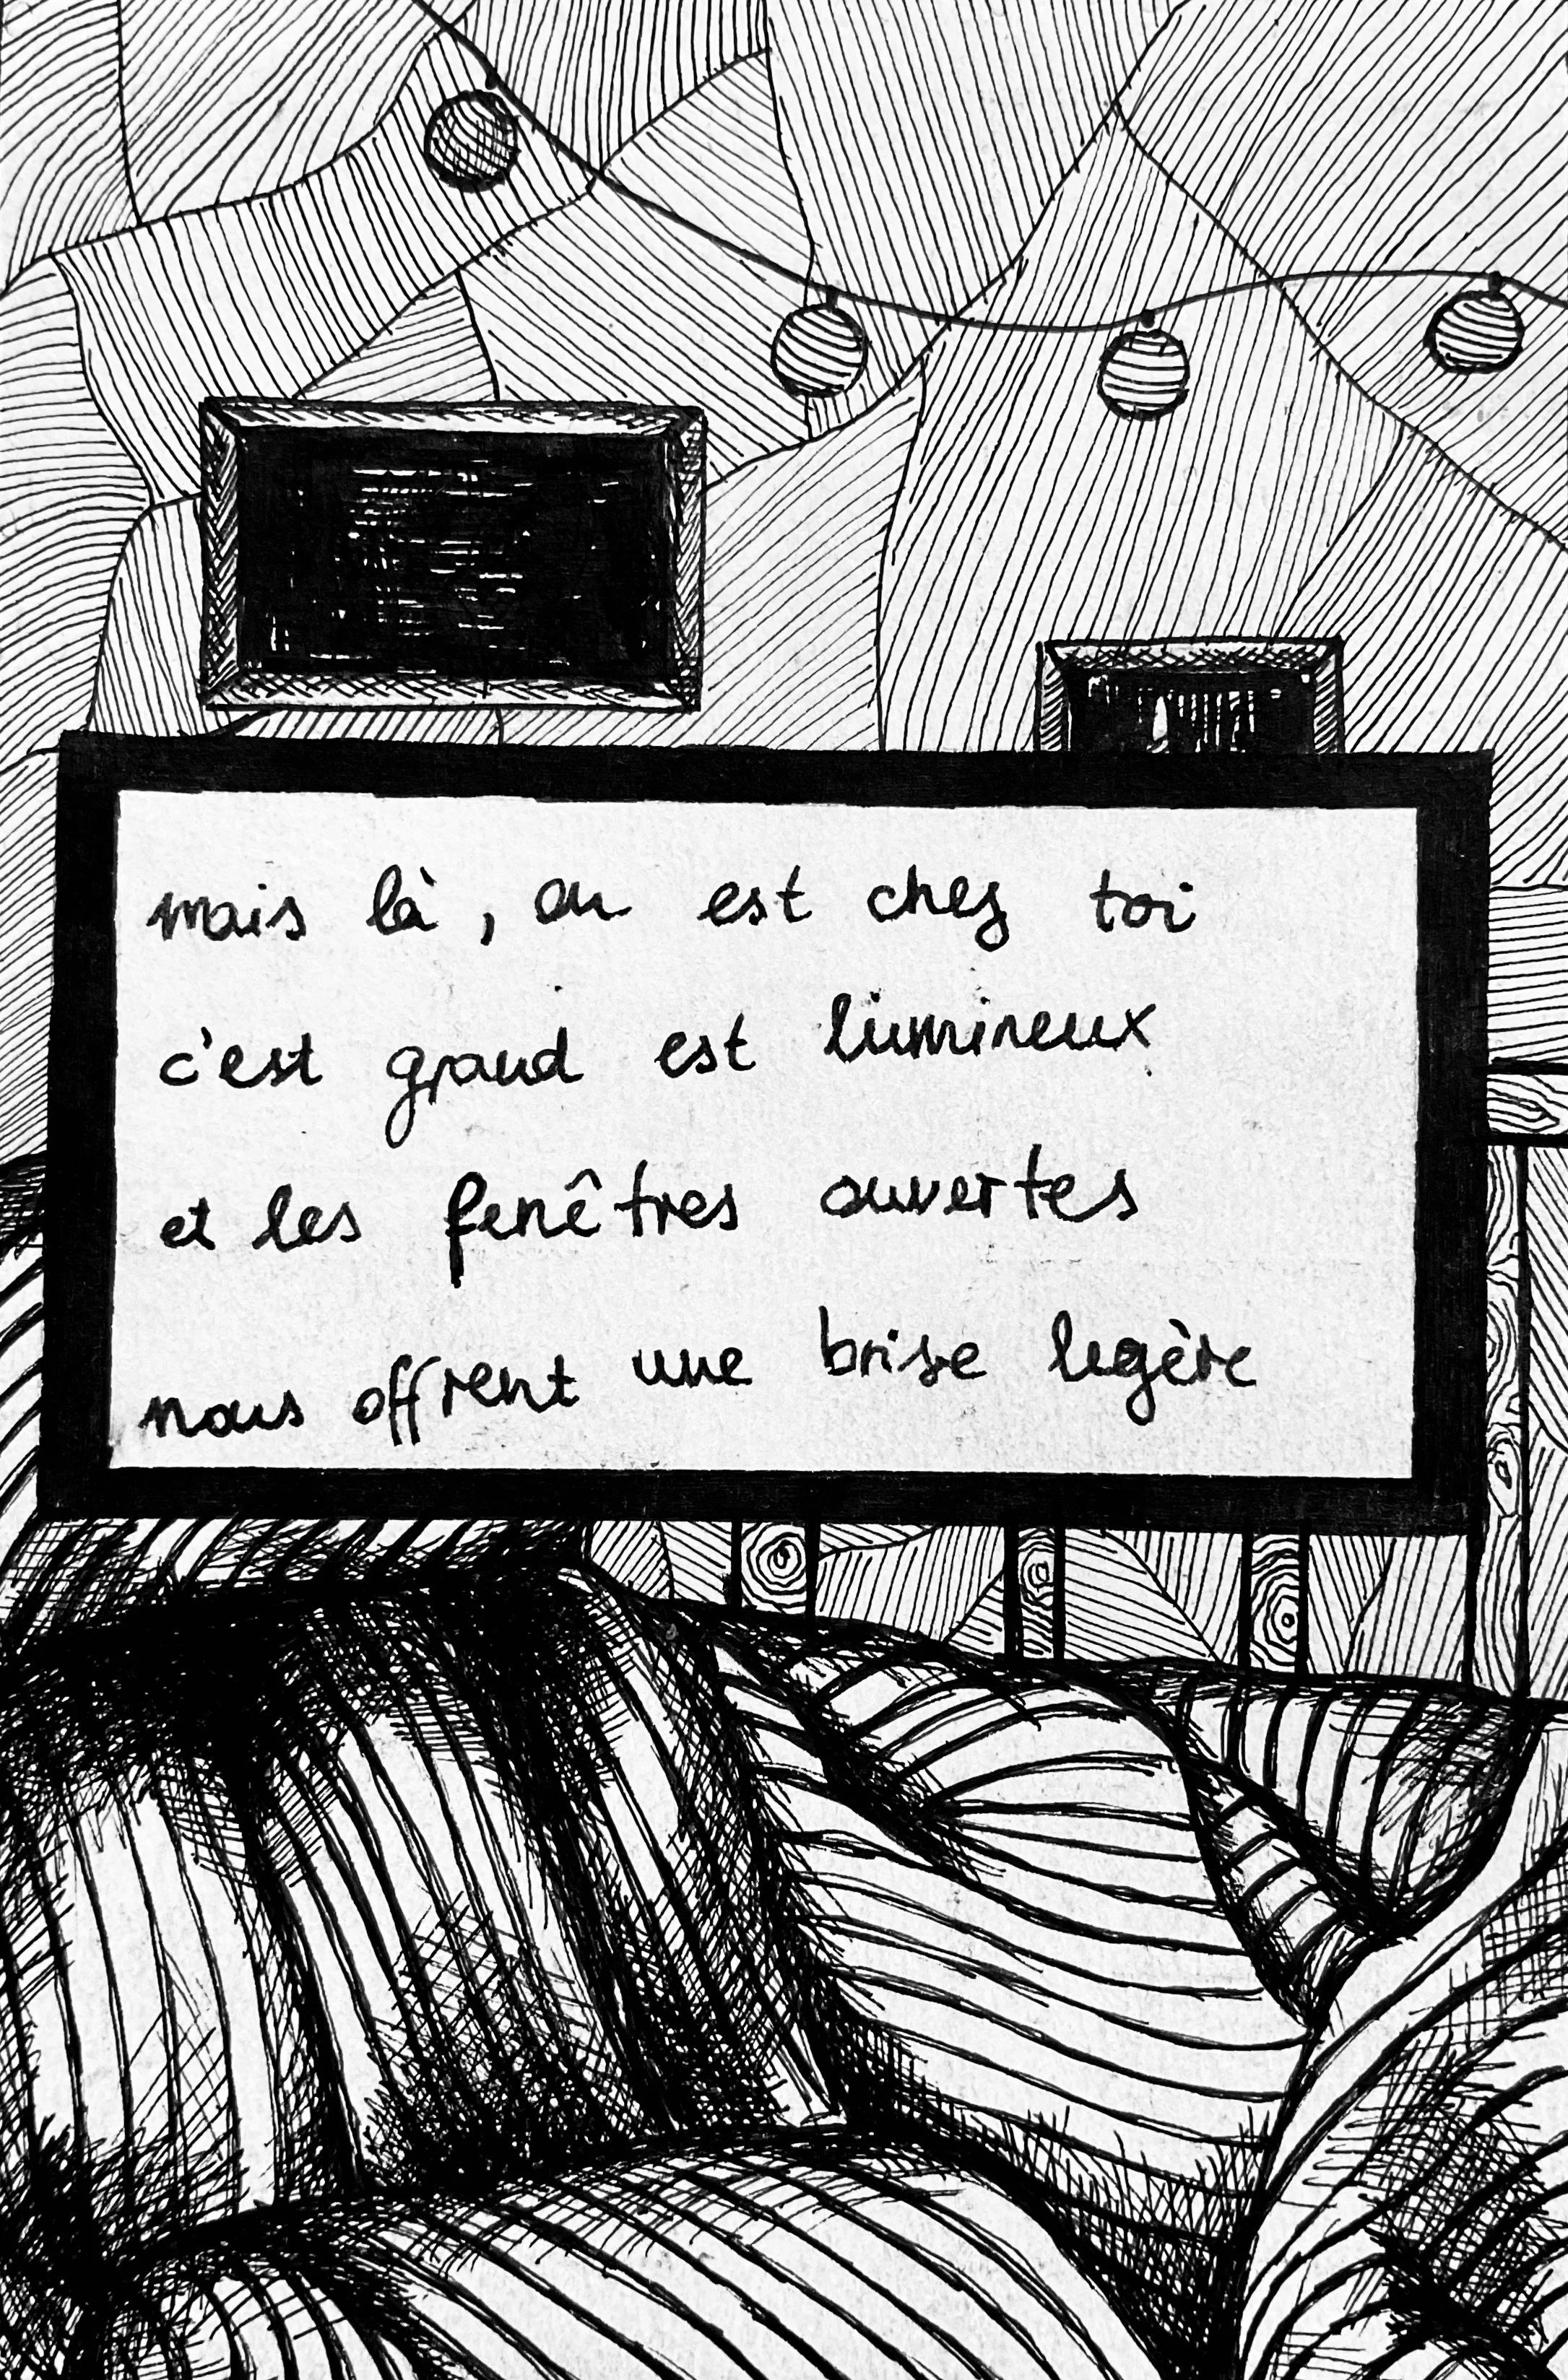 mais là, on est chez toi
c'est grand est lumineux
et les fenêtres ouvertes
nous offrent une brise legère